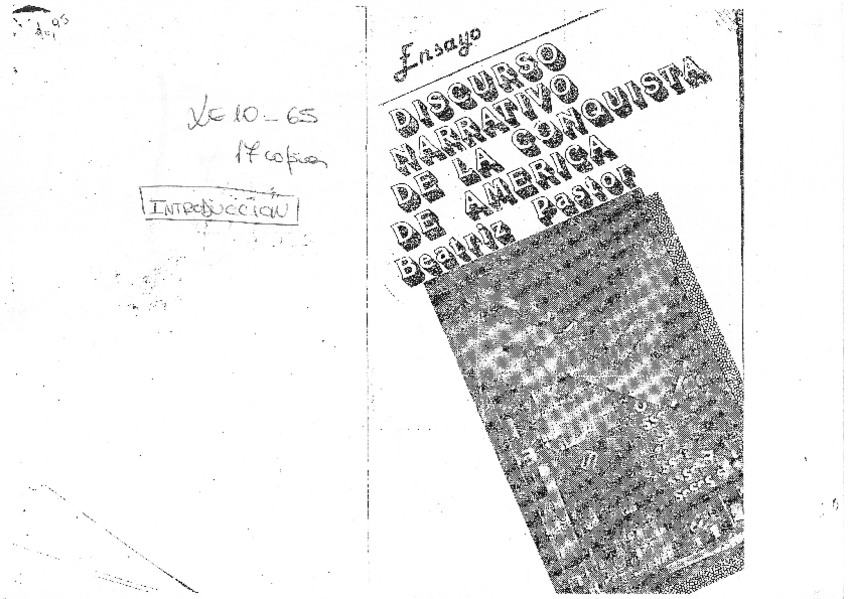 10-65
17 copias
INTRODUCCIÓN
Ensayo
DISCURSO
NARRATIVO
DE LA CONQUISTA
DE AMERICA
Beatriz Pastor